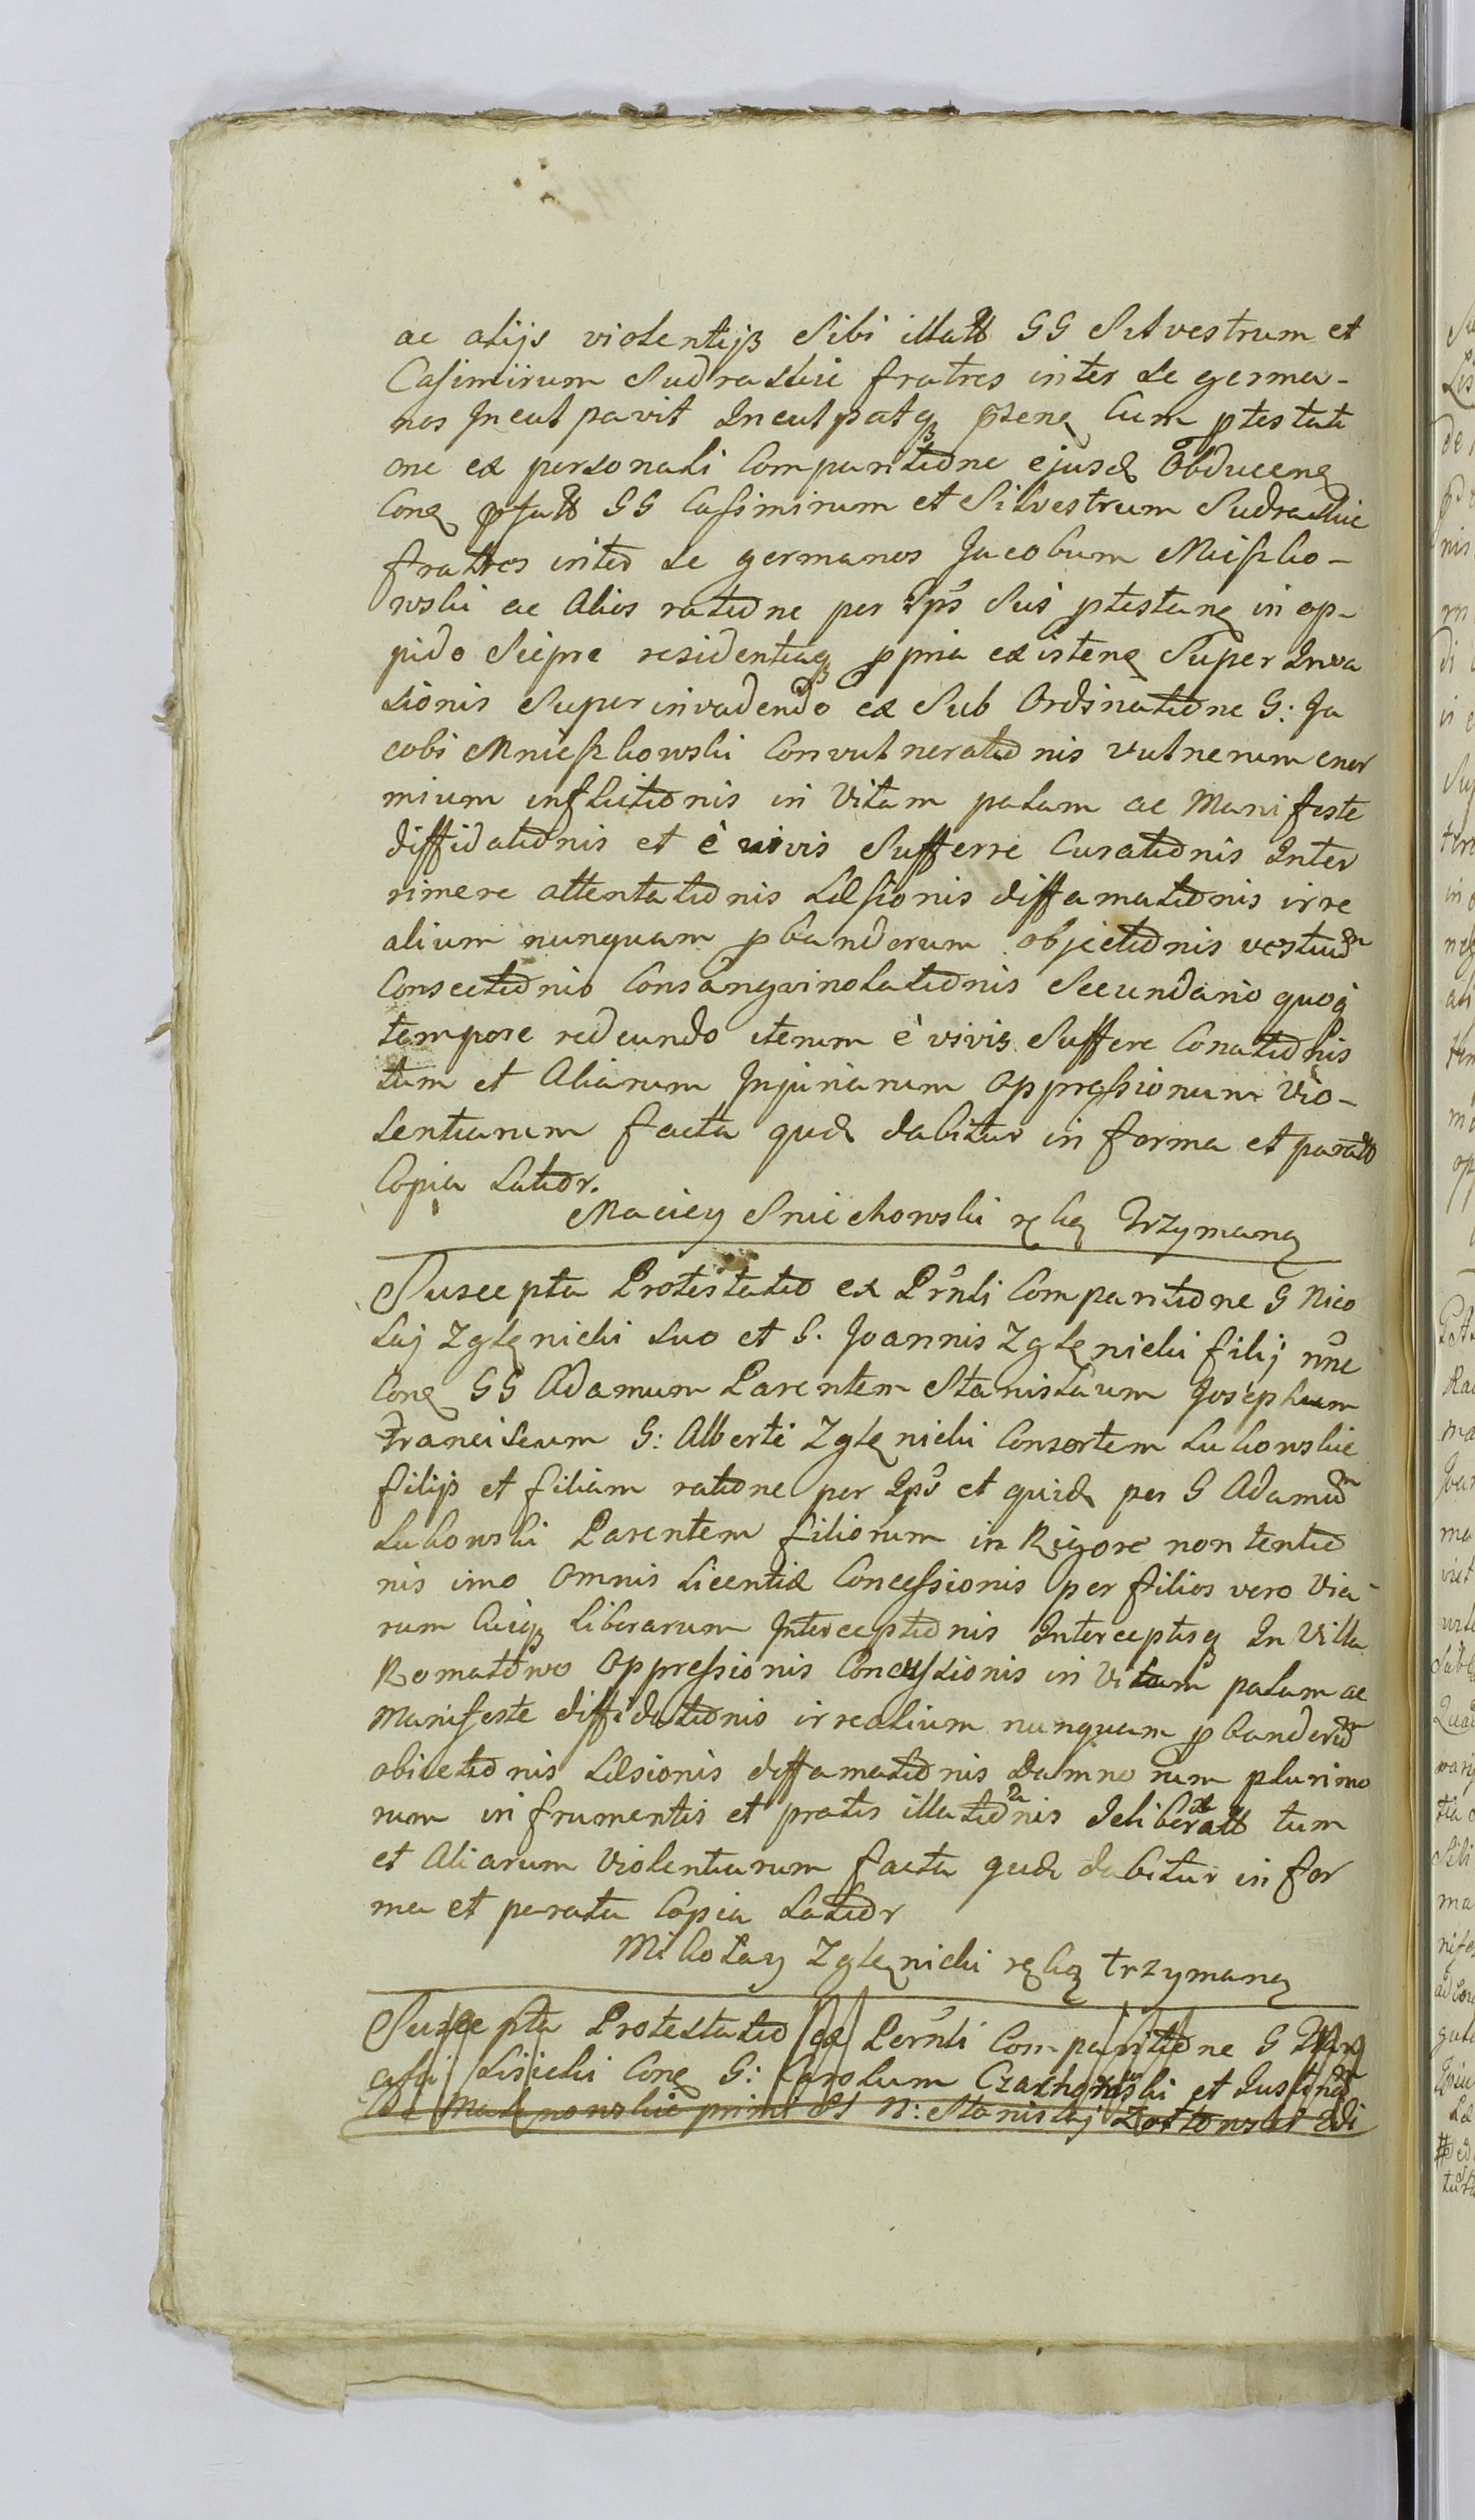 ac alijs violentijs Sibi illatt GG Silvestrum et
Casimirum Sudrawskie fratres inter se germa-
nos Inculpavit Inculpatq ptenq Cum ptestati
one ex personali Comparitione ejusd Obducenq
Conq pfatt GG Casimirum et Silvestrum Sudrawskie
fratres inter se germanos Jacobum Mnieszko-
wski ac Alios ratione per Ips Sui ptestanq in op-
pido Sierpc residentiaq ppria existenq Super Inva
sionis Super invadendo ex Sub Ordinatione G: Ja
cobi Mnieszkowski Convulnerationis vulnerum enor
mium inflictionis in Vitam palam ac Manifeste
diffidationis et è vivis Sufferre Curationis Inter
rimere attentationis Læsionis diffamationis irre
alium nunquam pbandorum objectionis vestium
Consectionis Consangvinolationis Secundario quoq
tempore redeundo iterum è vivis Suffere Conationis
tum et Aliarum Injuriarum Oppressionum Vio-
lentiarum facta qud dabitur in forma et parata
Copia Latior.
Maciey Sniechowski rękę Trzymaną
Suscepta Protestatio ex Prnli Comparitione G Nico
laj Zglenicki Suo et G. Joannis Zglenicki filij nne
Conq GG Adamum Parentem Stanislaum Josephum
Franciscum G: Alberti Zglenicki Consortem Lukowskie
filijs et filiam ratione per Ips et quid per G Adamum
Lukowski Parentem filiorum in Rigore non tentio
nis imo Omnis Licentiæ Concessionis per filios vero Via-
rum Cuiq Liberarum Interceptionis Interceptisq In Villa
Romatowo Oppressionis Concussionis in Vitam palam ac
Manifeste diffidationis irrealium nunquam pbandorum
obiectionis Læsionis diffamationis Damnorum plurimo
rum in frumentis et pratis illationis deliberatt tum
et Aliarum Violentiarum facta qud dabitur in for
ma et parata Copia Latior
Mikołay Zglenicki rękę trzymaną
Suscepta Protestatio ex Pernli Comparitione G Mar
Lisicki Conq G: Carolum Czachorowski et Justinam
primi St N: Stanislaj